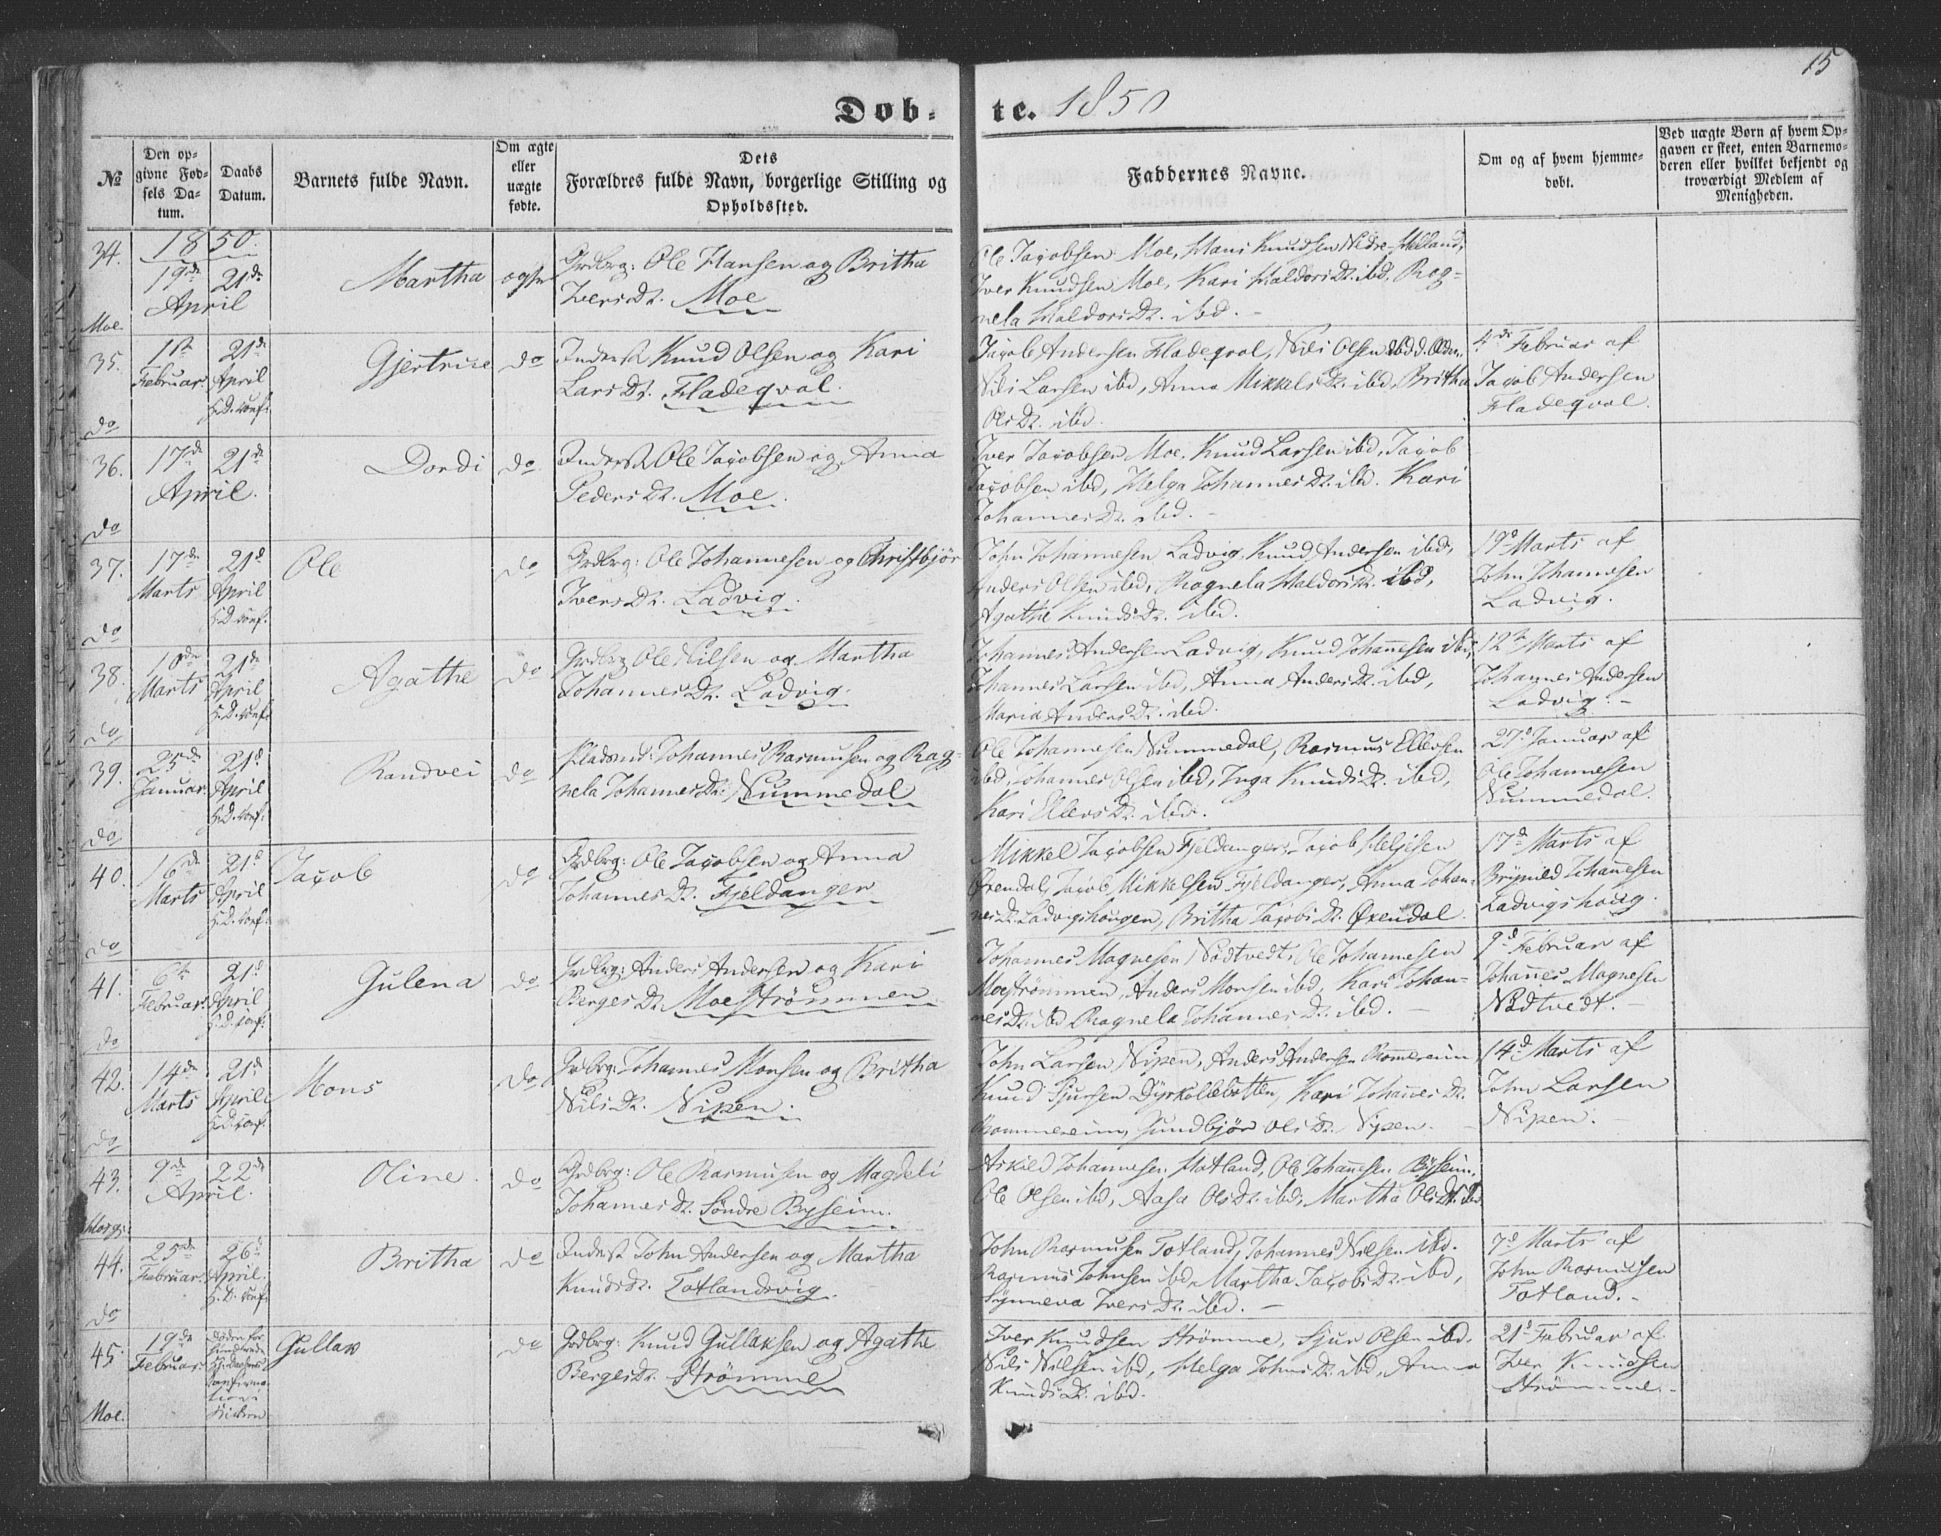 15
Døb- te. 1850
№
Den opgivne Fødsels Datum.
Daabs Datum.
Barnets fulde Navn.
Om ægte eller uægte fødte.
Dets Forældres fulde Navn, borgerlige Stilling og Opholdssted.
Faddernes Navne.
Om og af hvem hjemmedøbt.
Ved uægte Børn af hvem Opgaven er skeet, enten Barnemoderen eller hvilket bekjendt og troværdigt Medlem af Menigheden.
1850.
34.
Moe
19de 21de
April
Martha
ægte
Grdbrg: Ole Hansen og Britha
IversDr. Moe
Ole Jacobsen Moe, Hans Knudsen Nedre-Helland,
Iver Knudsen Moe, Kari HaldorsDr. ibd, Rag-
nela HaldorsDr. ibd. -
35.
do
1ste
Februar.
21de
April
H.D. Conf:
Gjertrue
do
Inderst Knud Olsen og Kari
LarsDr. Fladeqval.
Jacob Andersen Fladeqval, Nils Olsen
Nils Larsen ibd, Anna MikkelsDr. ibd, Britha
OlsDr. ibd.
4de Februar af
Jacob Andersen
Fladeqval.
36.
do
17de 21de
April.
Dordi
do
Inderst Ole Jacobsen og Anna
PedersDr. Moe.
Iver Jacobsen Moe. Knud Larsen ibd, Jacob
Jacobsen ibd, Helga JohannesDr. ibd. Kari
JohannesDr. ibd. -
37.
do
17de
Marts
21d
April
H.D. Conf.
Ole
do
Grdbrg: Ole Johannesen og Christbjør
IversDr. Ladvig.
John Johannesen Ladvig, Knud Andersen ibd,
Anders Olsen ibd, Ragnela HaldorsDr. ibd,
Agathe KnudsDr. ibd.
19d Marts af
John Johannesen
Ladvig.
38.
do
10de
Marts
21de
April
H.D. Conf.
Agathe
do
Grdbrg Ole Nilsen og Martha
JohannesDr. Ladvig.
Johannes Andersen Ladvig, Knud Johannesen ibd,
Johannes Larsen ibd, Anna AndersDr. ibd,
Maria AndersDr. ibd.
12te Marts af
Johannes Andersen
Ladvig. -
39.
do
25de
Januar.
21d
April
H.D. Conf.
Randvei
do
Pladsmd: Johannes Rasmusen og Rag-
nela JohannesDr. Nummedal
Ole Johannesen Nummedal, Rasmus Ellevsen
ibd, Johannes Olsen ibd, Inga KnudsDr. ibd,
Kari EllevsDr. ibd.
27d Januar af
Ole Johannesen
Nummedal.
40.
do
16de
Marts
21d
April
H.D. Conf.
Jacob
do
Grdbrg: Ole Jacobsen og Anna
JohannesDr. Fjeldanger
Mikkel Jacobsen Fjeldanger, Jacob Heljesen
Øxendal, Jacob Mikkelsen Fjeldanger, Anna Johan-
nesDr. Ladvigshougen, Britha JacobsDr. Øxendal.
17d Marts af
Brynild Johannesen
Ladvigshoug.
41.
do
6te
Februar.
21d
April
H.D. Conf:
Gulena
do
Grdbrg: Anders Andersen og Kari
BergesDr. Moestrømmen
Johannes Magnesen Nødtvedt, Ole Johannesen
Moestrømmen, Anders Monsen ibd, Kari Johan-
nesDr. ibd Ragnela JohannesDr. ibd. -
9d Februar af
Johannes Magnesen
Nødtvedt. -
42.
do
14de
Marts
21d
April
H.D. Conf.
Mons
do
Grdbrg: Johannes Monsen og Britha
NilsDr. Nipen.
John Larsen Nipen, Anders Andersen Rommereim
Knud Sjursen Dyrkollebotten, Kari JohannesDr.
Rommereim, Gundbjør OlsDr. Nipen. -
14d Marts af
John Larsen
Nipen. -
43.
9de 22de
April.
Oline.
do
Grdbrg: Ole Rasmusen og Magdeli
JohannesDr. Søndre Byseim.
Askild Johannesen Hatland, Ole Johannesen Byseim,
Ole Olsen ibd, Aasa OlsDr. ibd, Martha OlsDr. ibd
44.
do
25de
Februar.
26d
April.
H.D. Conf.
Britha
do
Inderst John Andersen og Martha
KnudsDr. Totlandsvig.
John Rasmusen Totland, Johannes Nilsen ibd.
Rasmus Johnsen ibd, Martha JacobsDr. ibd,
Synneva IversDr. ibd. -
7d Marts af
John Rasmusen
Totland. -
45.
Moe.
19de
Februar.
Gullak
do
Grdbrg: Knud Gullaksen og Agathe
BergesDr. Strømme
Iver Knudsen Strømme, Sjur Olsen ibd,
Nils Nilsen ibd, Helga JohnsDr. ibd, Anna
KnudsDr. ibd.
21d Februar af
Iver Knudsen
Strømme. -